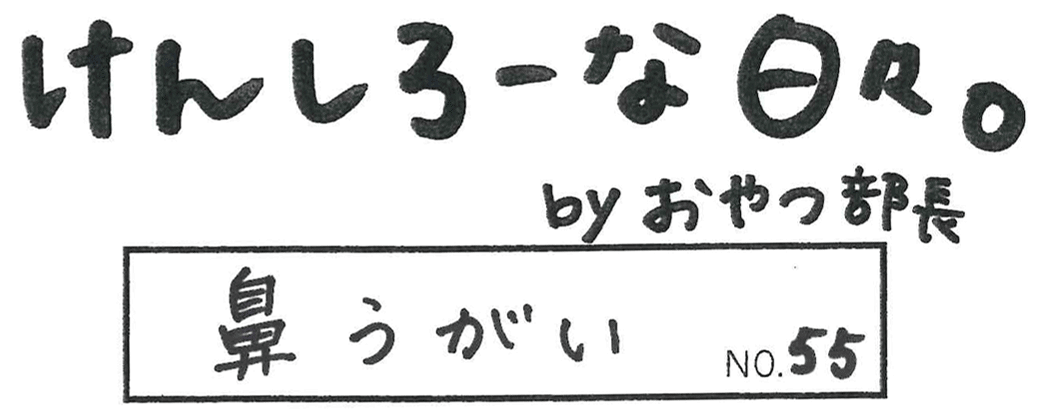 けんしろーな日々。
by おやつ部長
鼻うがい NO.55